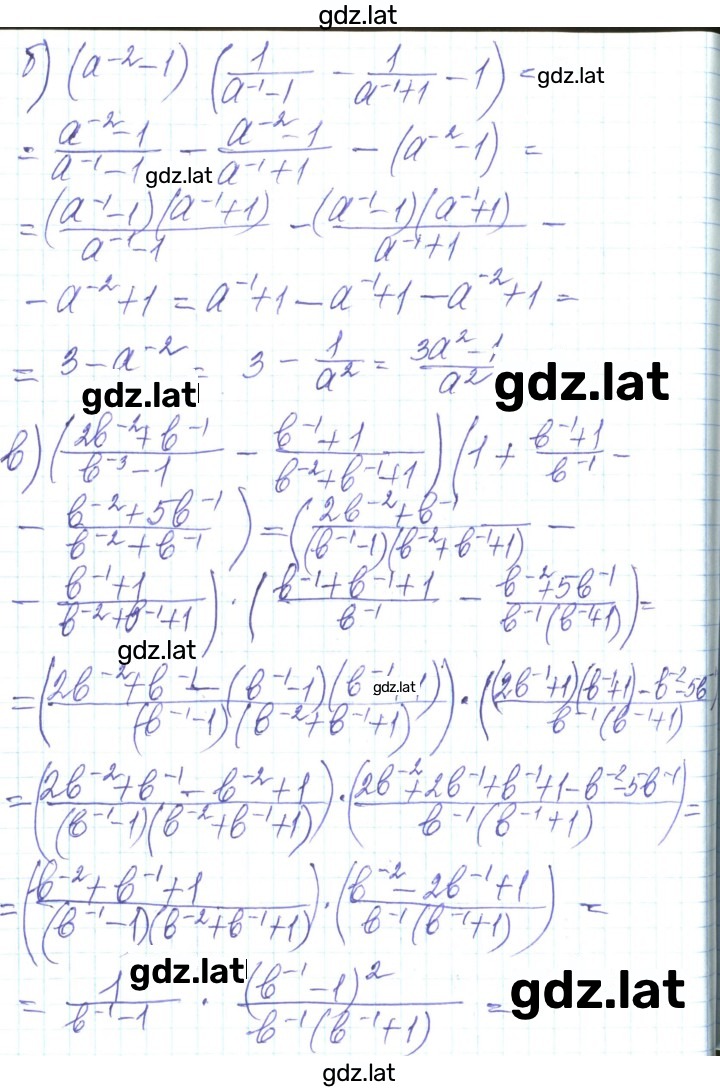 gdz.lat
б) (a⁻²-1) (1/(a⁻¹-1) - 1/(a⁻¹+1) - 1) = gdz.lat
= (a⁻²-1)/(a⁻¹-1) - (a⁻²-1)/(a⁻¹+1) - (a⁻²-1) =
gdz.lat
= (a⁻¹-1)(a⁻¹+1)/(a⁻¹-1) - (a⁻¹-1)(a⁻¹+1)/(a⁻¹+1) -
- a⁻²+1 = a⁻¹+1-a⁻¹+1-a⁻²+1 =
= 3-a⁻² = 3 - 1/a² = (3a²-1)/a²
gdz.lat
gdz.lat
в) ((2b⁻²+b⁻¹)/(b⁻³-1) - (b⁻¹+1)/(b⁻²+b⁻¹+1)) (1 + (b⁻¹+1)/b⁻¹ -
- (b⁻²+5b⁻¹)/(b⁻²+b⁻¹)) = ((2b⁻²+b⁻¹)/((b⁻¹-1)(b⁻²+b⁻¹+1)) -
- (b⁻¹+1)/(b⁻²+b⁻¹+1)) · ((b⁻¹+b⁻¹+1)/b⁻¹ - (b⁻²+5b⁻¹)/(b⁻¹(b⁻¹+1))) =
gdz.lat
= ((2b⁻²+b⁻¹-(b⁻¹-1)(b⁻¹ gdz.lat 1))/((b⁻¹-1)(b⁻²+b⁻¹+1))) · (((2b⁻¹+1)(b⁻¹+1)-b⁻²-5b⁻¹)/(b⁻¹(b⁻¹+1)))
= ((2b⁻²+b⁻¹-b⁻²+1)/((b⁻¹-1)(b⁻²+b⁻¹+1))) · ((2b⁻²+2b⁻¹+b⁻¹+1-b⁻²-5b⁻¹)/(b⁻¹(b⁻¹+1))) =
= ((b⁻²+b⁻¹+1)/((b⁻¹-1)(b⁻²+b⁻¹+1))) · ((b⁻²-2b⁻¹+1)/(b⁻¹(b⁻¹+1))) =
gdz.lat
= 1/(b⁻¹-1) · (b⁻¹-1)²/(b⁻¹(b⁻¹+1)) = gdz.lat
gdz.lat